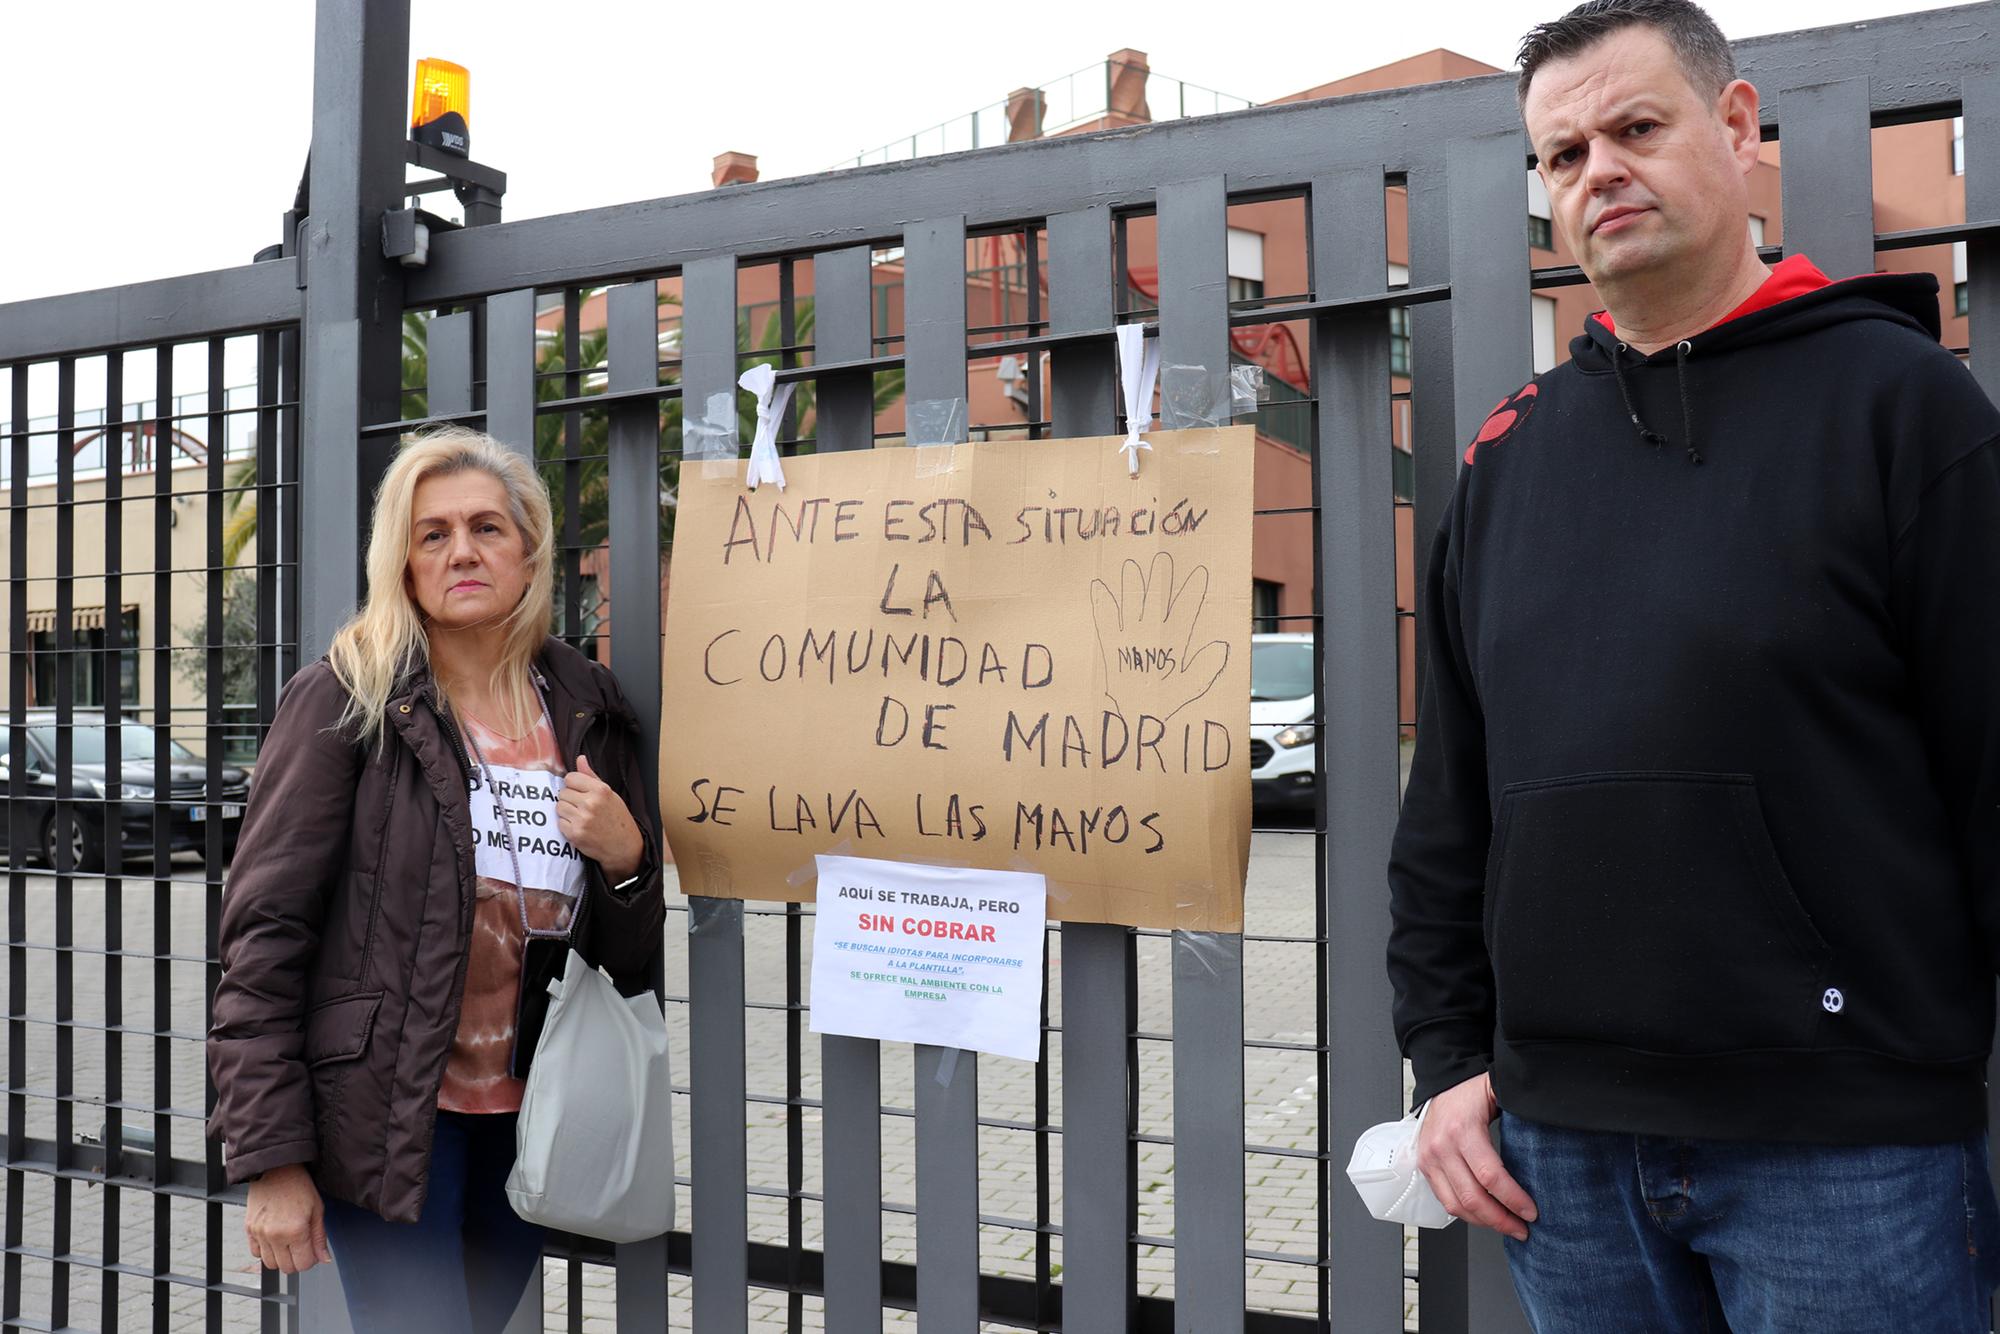 ANTE ESTA SITUACIÓN
LA
COMUNIDAD
DE MADRID
SE LAVA LAS MANOS
MANOS
AQUÍ SE TRABAJA, PERO
SIN COBRAR
"SE BUSCAN IDIOTAS PARA INCORPORARSE
A LA PLANTILLA".
SE OFRECE MAL AMBIENTE CON LA
EMPRESA
O TRABAJ
PERO
O ME PAGAN